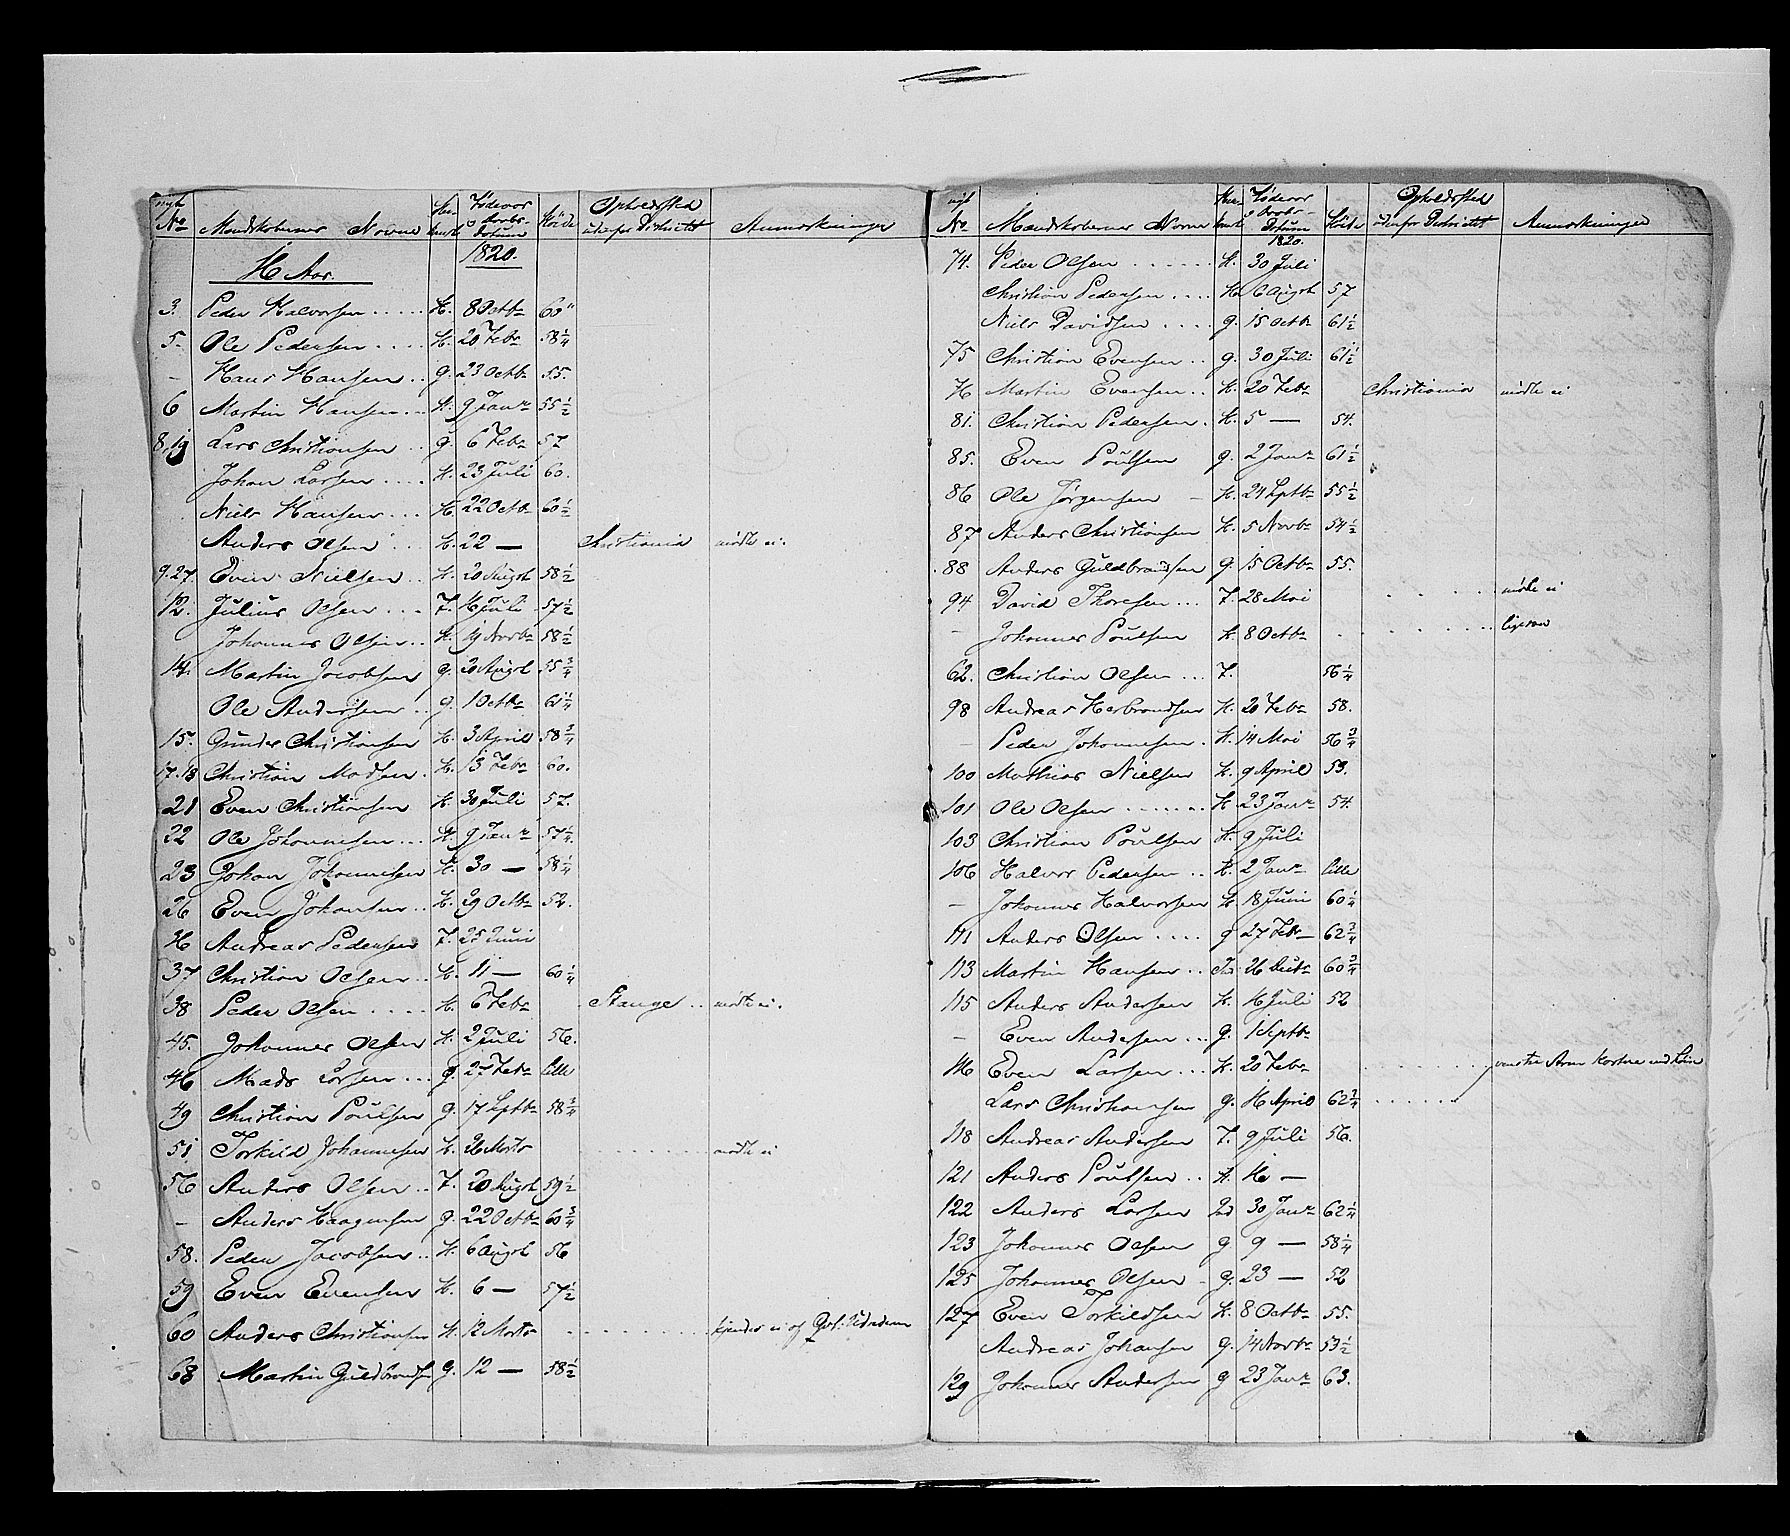 No Mandskabernes Navne Høide Opholdssted udenfor Districtet Anmærkninger
1820.
16 Aar.
3. Peder Halvorsen ..... H. 8 Octbr 60"
5. Ole Pedersen .... H. 20 Febr 58 1/4
- Hans Hansen .. g. 23 Octbr 55.
6 Martin Hansen ... H. 9 Janr 55 1/2
8.19 Lars Christiansen .. g. 6 Febr 57
Johan Larsen .... H. 23 Juli 60.
Niels Hansen ... H. 22 Octbr 60 1/2
Anders Olsen ... H. 22 — Christiania mødte ei.
9.27 Even Nielsen .. H. 20 Augst 58 1/2
12. Julius Olsen ... F. 16 Juli 57 1/2
Johannes Olsen .. H. 19 Novbr 58 1/2
14. Martin Jacobsen g. 20 Augst 55 3/4
Ole Andersen .. g. 1 Octbr 61 1/4
15. Gunder Christiansen H. 3 April 58 3/4
17.18 Christian Madsen . H. 13 Febr 60.
21 Even Christiansen H. 30 Juli 57.
22 Ole Johannesen ... H. 9 Janr 57 1/4
23 Johan Johannesen H. 30 — 58 1/4
26 Even Johansen .. H. 29 Octbr 52.
36 Andreas Pedersen F. 25 Juni
37 Christian Olsen .. H. 11 — 60 1/4
38 Peder Olsen .... H. 6 Febr Stange .. mødte ei.
45. Johannes Olsen H. 2 Juli 56.
46 Mads Larsen ... g. 27 Febr lille
49 Christian Poulsen g. 17 Septbr 58 3/4
51. Torkild Johannesen H. 26 Marts ........ mødte ei
56 Anders Olsen .. F. 20 Augst 59 1/2
- Anders Haagensen g. 22 Octbr 60 3/4
58. Peder Jacobsen .. H. 6 Augst 56
59 Even Evensen H. 6 — 57 1/2
60 Anders Christiansen H. 12 Marts ........ kjendes ei af
68 Martin Guldbrandsen g. 12 — 58 1/2
No Mandskabernes Navne Høide Opholdssted udenfor Districtet Anmærkninger
1820.
74. Peder Olsen ...... H. 30 Juli
Christian Pedersen .... H. 6 Augst 57
Niels Davidsen .... g. 15 Octbr 61 1/2
75 Christian Evensen .. g. 30 Juli 61 1/2
76 Martin Evensen .. H. 20 Febr Christiania mødte ei
81. Christian Pedersen . H. 5 — 54.
85. Even Poulsen g. 2 Janr 61 1/2
86 Ole Jørgensen - H. 24 Septbr 55 1/2
87 Anders Christiansen H. 5 Novbr 54 1/2
88 Anders Guldbrandsen g. 15 Octbr 55.
94 David Thoresen ... F. 28 Mai .... mødte ei
- Johannes Poulsen H. 8 Octbr ........ ligesaa
62. Christian Olsen ... F. 56 1/4
98 Andreas Herbrandsen H. 20 Febr 58.
- Peder Johannesen . H. 14 Mai 56 3/4
100 Mathias Nielsen H. 9 April 53.
101 Ole Olsen ....... H. 23 Janr 54.
103 Christian Poulsen H. 9 Juli
106 Halvor Pedersen .. H. 2 Janr lille
- Johannes Halvorsen H. 18 Juni 60 1/4
111 Anders Olsen .... g 27 Febr 62 3/4
113 Martin Hansen .. Ind 26 Decbr 60 3/4
115 Anders Andersen H. 16 Juli 52
- Even Andersen ... g. 1 Septbr
116 Even Larsen ... H. 20 Febr ........ venstre Arm kortere end
Lars Christiansen g. 16 April 62 3/4 ......
118 Andreas Andersen F. 9 Juli 56.
121 Anders Poulsen .. H. 16 —
122 Anders Larsen Ind 30 Janr 62 1/4
123 Johannes Olsen g 9 — 58 1/4
125 Johannes Olsen - g. 23 — 52
127 Even Torkildsen H. 8 Octbr 55.
Andreas Johansen g. 14 Novbr 53 1/2
129 Johannes Andersen g 23 Janr 63.